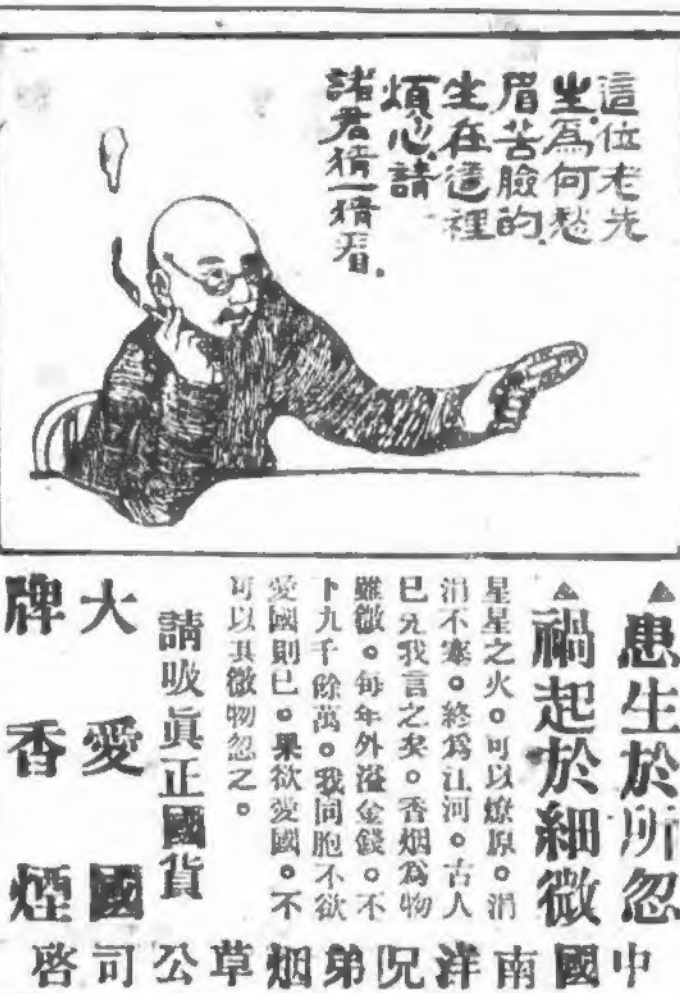 這位老先
生爲何愁
眉苦臉的.
生在這裡
煩心.請
諸君猜一猜看.
▲患生於所忽
▲禍起於細微
星星之火。可以燎原。涓
涓不塞。終爲江河。古人
已先我言之矣。香烟爲物
雖微。每年外溢金錢。不
下九千餘萬。我同胞不欲
愛國則已。果欲愛國。不
可以其微物忽之。
請吸眞正國貨
大愛國
牌香煙
中國南洋兄弟烟草公司啓